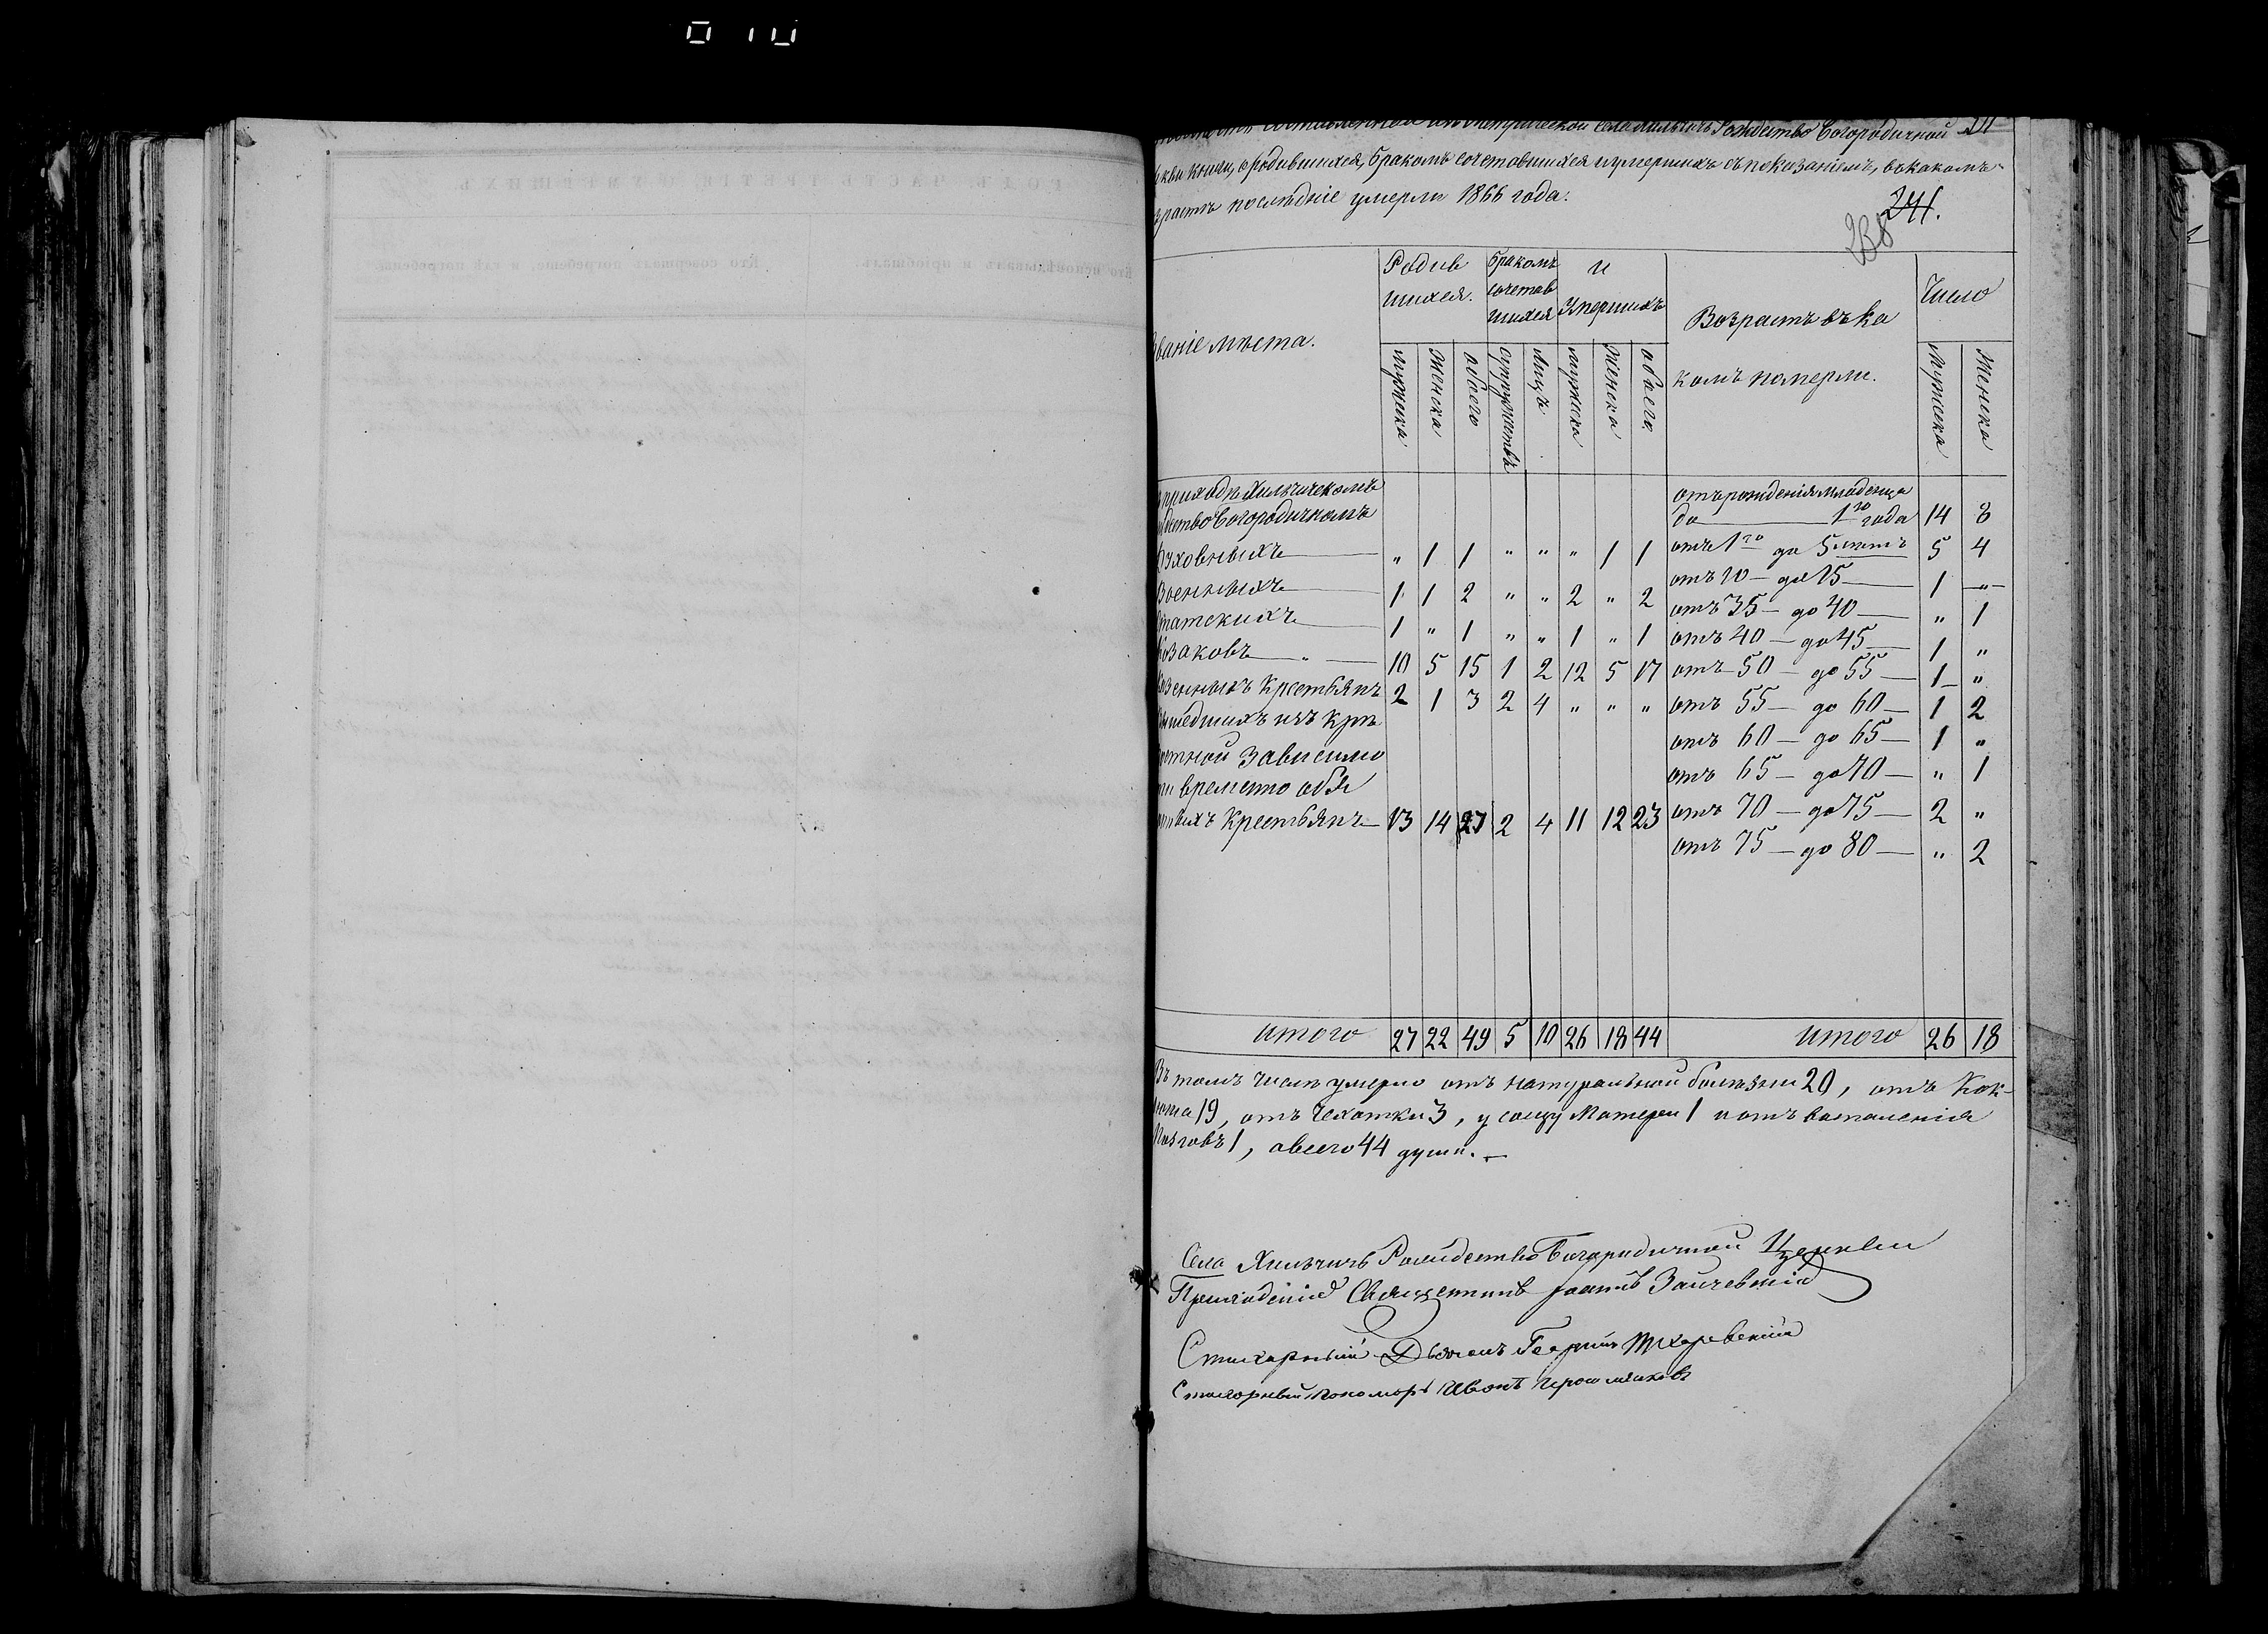 010
Рождество Богородичной
книги, о родившихся, бракомъ сочетавшихся и умершихъ съ показаніемъ, въ какомъ
последніе умерли 1866 года.
241.
238
Родив шихся. | Бракомъ сочетав шихся | и Умершихъ | Возрастъ въ ка комъ померли. | Число
званіе мѣста.
мужеска | женска | обоего | супружествъ | лицъ | мужеска | женска | обоего | Мужеска | Женска
приходѣ Хильчичскомъ | отъ рожденія младенца
Богородичномъ | до — 1го года | 14 | 8
Духовныхъ — | „ | 1 | 1 | „ | „ | „ | 1 | 1 | отъ 1го до 5 летъ | 5 | 4
Военныхъ — | 1 | 1 | 2 | „ | „ | 2 | „ | 2 | отъ 10 — до 15 — | 1 | „
Статскихъ — | 1 | „ | 1 | „ | „ | 1 | „ | 1 | отъ 35 — до 40 — | „ | 1
Козаковъ — | 10 | 5 | 15 | 1 | 2 | 12 | 5 | 17 | отъ 40 — до 45 — | 1 | „
Казенныхъ Крестьянъ | 2 | 1 | 3 | 2 | 4 | „ | „ | „ | отъ 50 — до 55 — | 1 | „
вышедшихъ изъ крѣ | отъ 55 — до 60 — | 1 | 2
постной зависимо | отъ 60 — до 65 — | 1 | „
сти временно обя | отъ 65 — до 70 — | „ | 1
Крестьянъ — | 13 | 14 | 27 | 2 | 4 | 11 | 12 | 23 | отъ 70 — до 75 — | 2 | „
отъ 75 — до 80 — | „ | 2
Итого | 27 | 22 | 49 | 5 | 10 | 26 | 18 | 44 | Итого | 26 | 18
Въ томъ числѣ умерло отъ натуральной болѣзни 20, отъ Кок-
люша 19, отъ Чехотки 3, у сосцу Матери 1 и отъ воспаленія
Мозговъ 1, обоего 44 души. —
Села Хильчичъ Рождество Богородичной Церкви
Приходскій Священникъ Іоаннъ Зайчевскій
Стихарный Дьячекъ Георгій
Стихарный Пономарь Иванъ